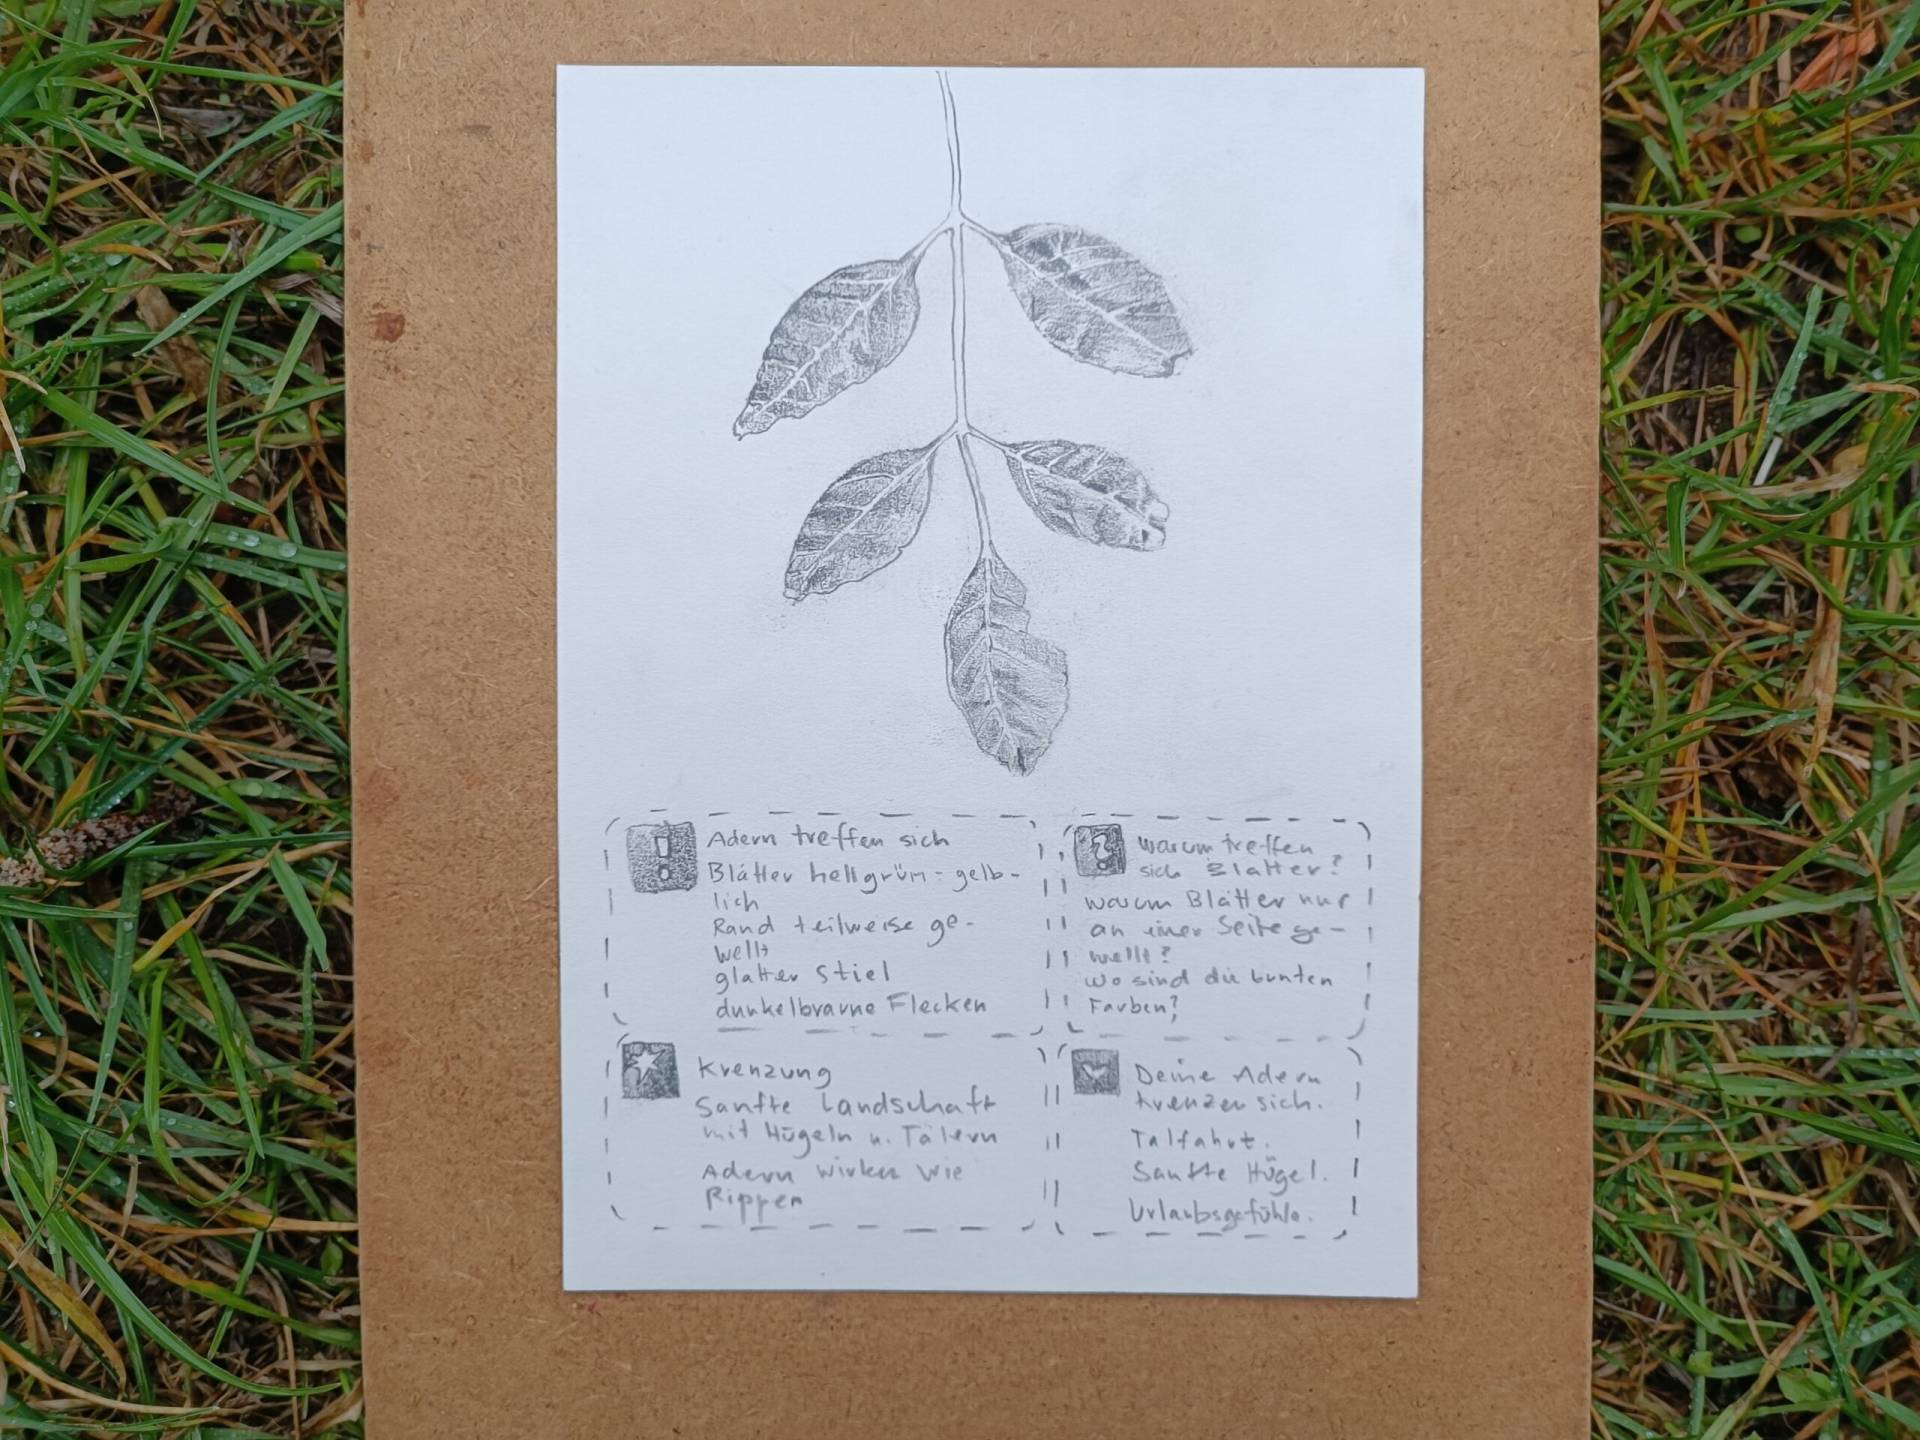 Adern treffen sich
Blätter hellgrün-gelb-
lich
Rand teilweise ge-
wellt
glatter Stiel
dunkelbraune Flecken
warum treffen
sich Blätter?
warum Blätter nur
an einer Seite ge-
wellt?
wo sind die bunten
Farben?
Kreuzung
Sanfte Landschaft
mit Hügeln u. Tälern
Adern wirken wie
Rippen
Deine Adern
kreuzen sich.
Talfahrt.
Sanfte Hügel.
Urlaubsgefühle.